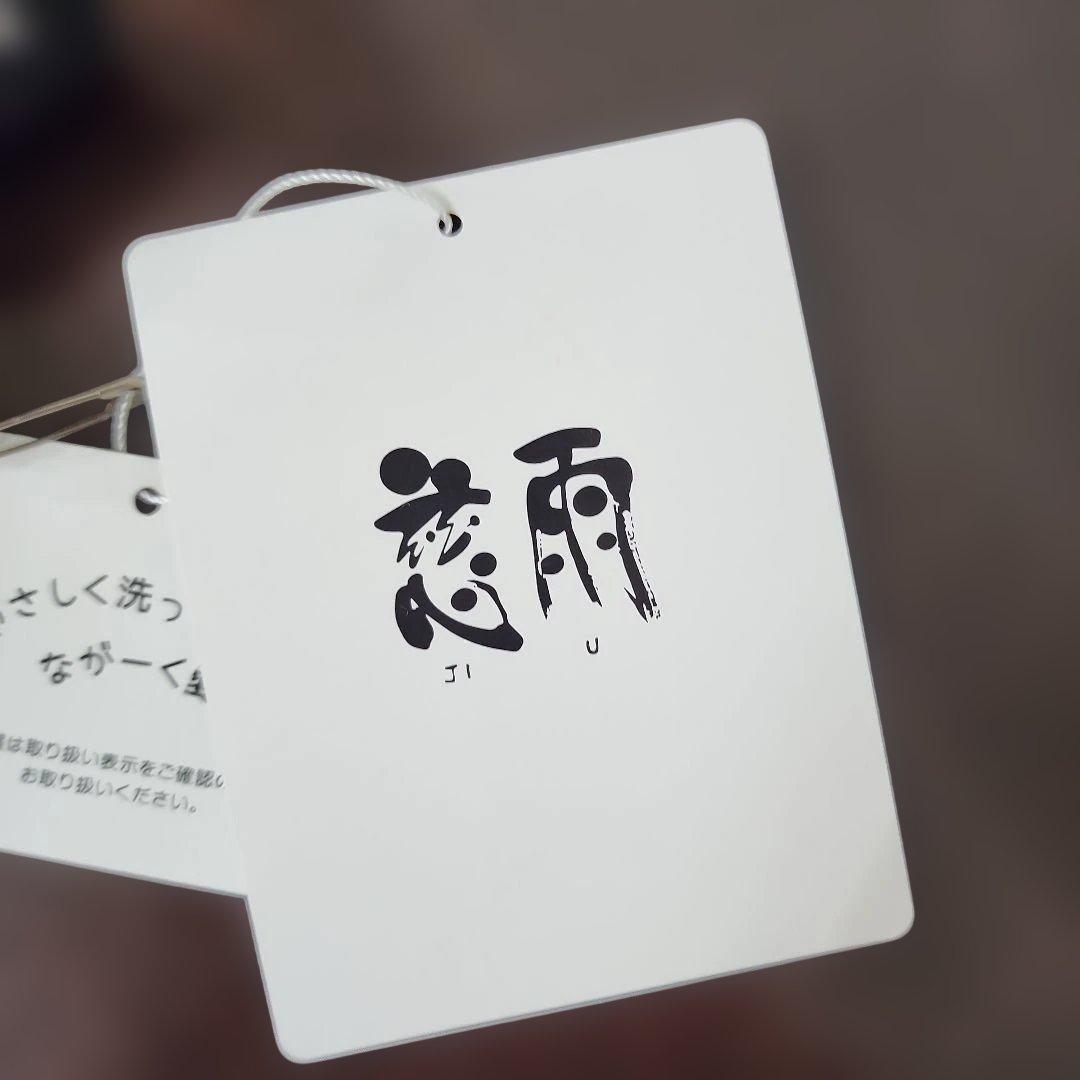 慈雨
JI U
さしく洗っ
ながーく
は取り扱い表示をご確認の
お取り扱いください。